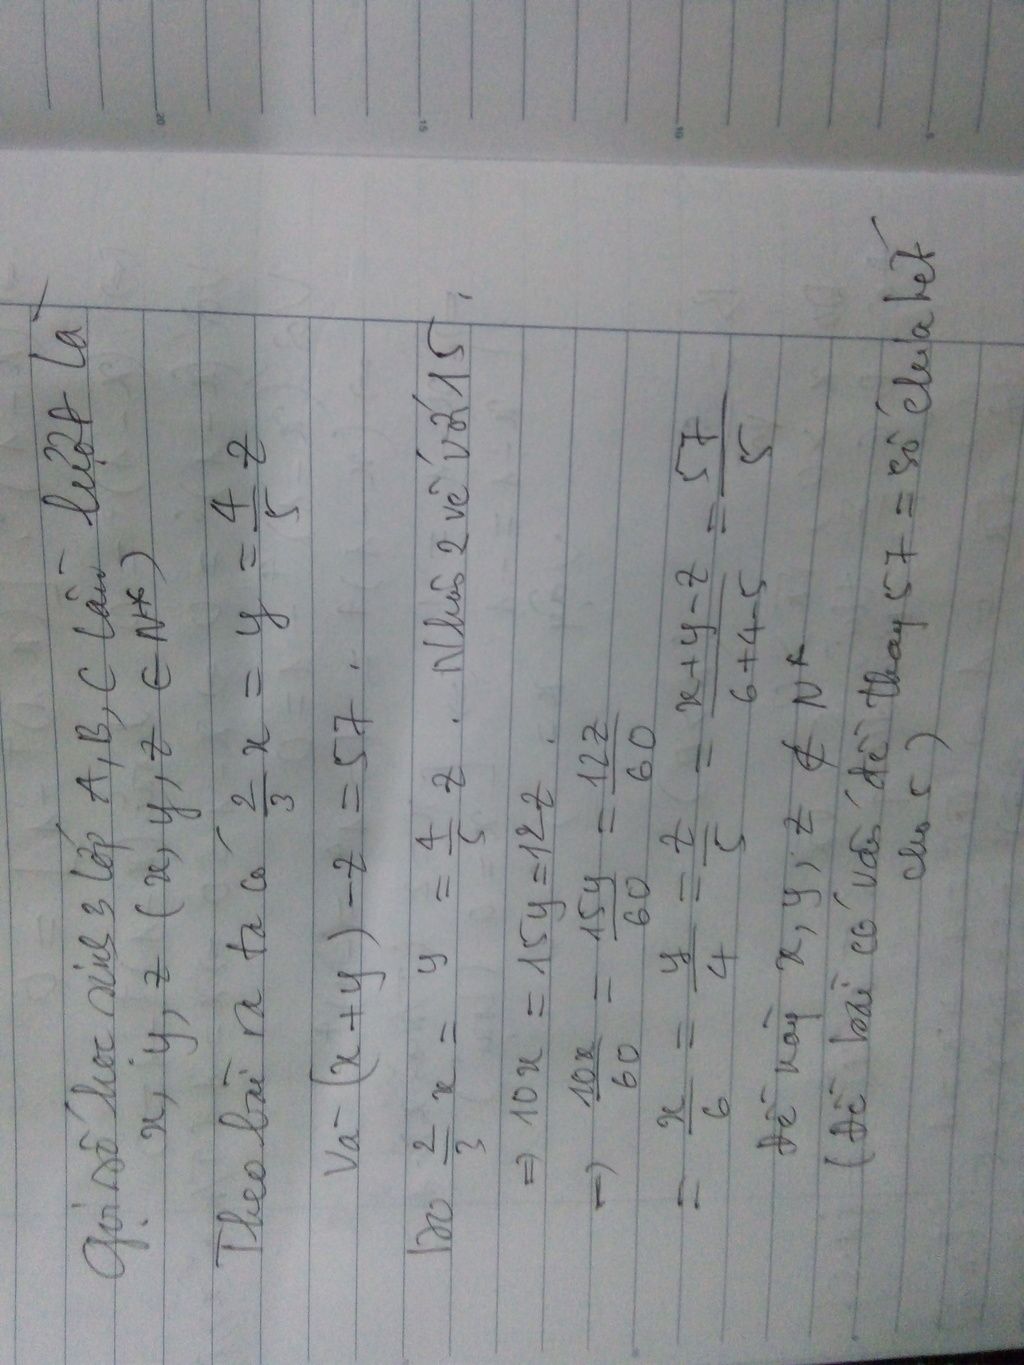 Gọi số học sinh 3 lớp A, B, C lần lượt là
x, y, z (x, y, z ∈ N*)
Theo bài ra ta có 2/3 x = y = 4/5 z
Và (x + y) - z = 57.
Do 2/3 x = y = 4/5 z. Nhân 2 vế với 15.
⇒ 10x = 15y = 12z.
⇒ 10x/60 = 15y/60 = 12z/60
= x/6 = y/4 = z/5 = x+y-z/6+4-5 = 57/5
Đề này x, y, z ∉ N*
(Đề bài có vấn đề thay 57 = số chia hết
cho 5)
20
15
10
5